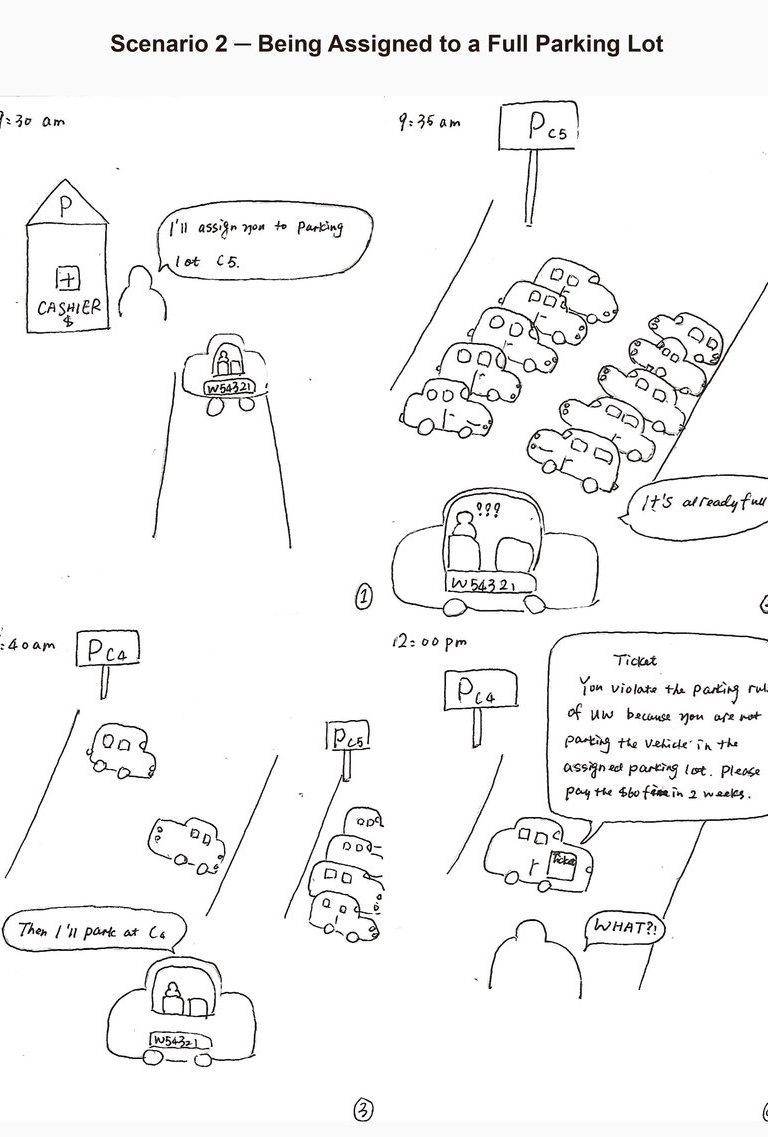 Scenario 2 — Being Assigned to a Full Parking Lot
9:30 am
P
CASHIER
$
I'll assign you to parking
lot C5.
W54321
1
9:35 am
P C5
It's already full
???
W54321
:40am
P C4
P C5
Then I'll park at C4
W54321
3
12:00 pm
P C4
Ticket
You violate the parking rul
of UW because you are not
parking the vehicle in the
assigned parking lot. Please
pay the $60 fine in 2 weeks.
Ticket
WHAT?!